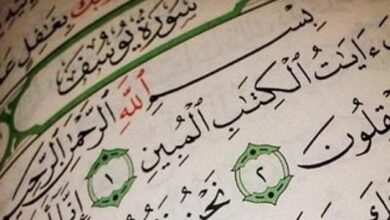 بِغَٰفِلٍ
سُورَةُ يُوسُفَ
بِسْمِ ٱللَّهِ ٱلرَّحْمَٰنِ ٱلرَّحِيـ
ءَايَٰتُ ٱلْكِتَٰبِ ٱلْمُبِينِ ١ إِنَّآ
ـقِلُونَ ٢ نَحْنُ